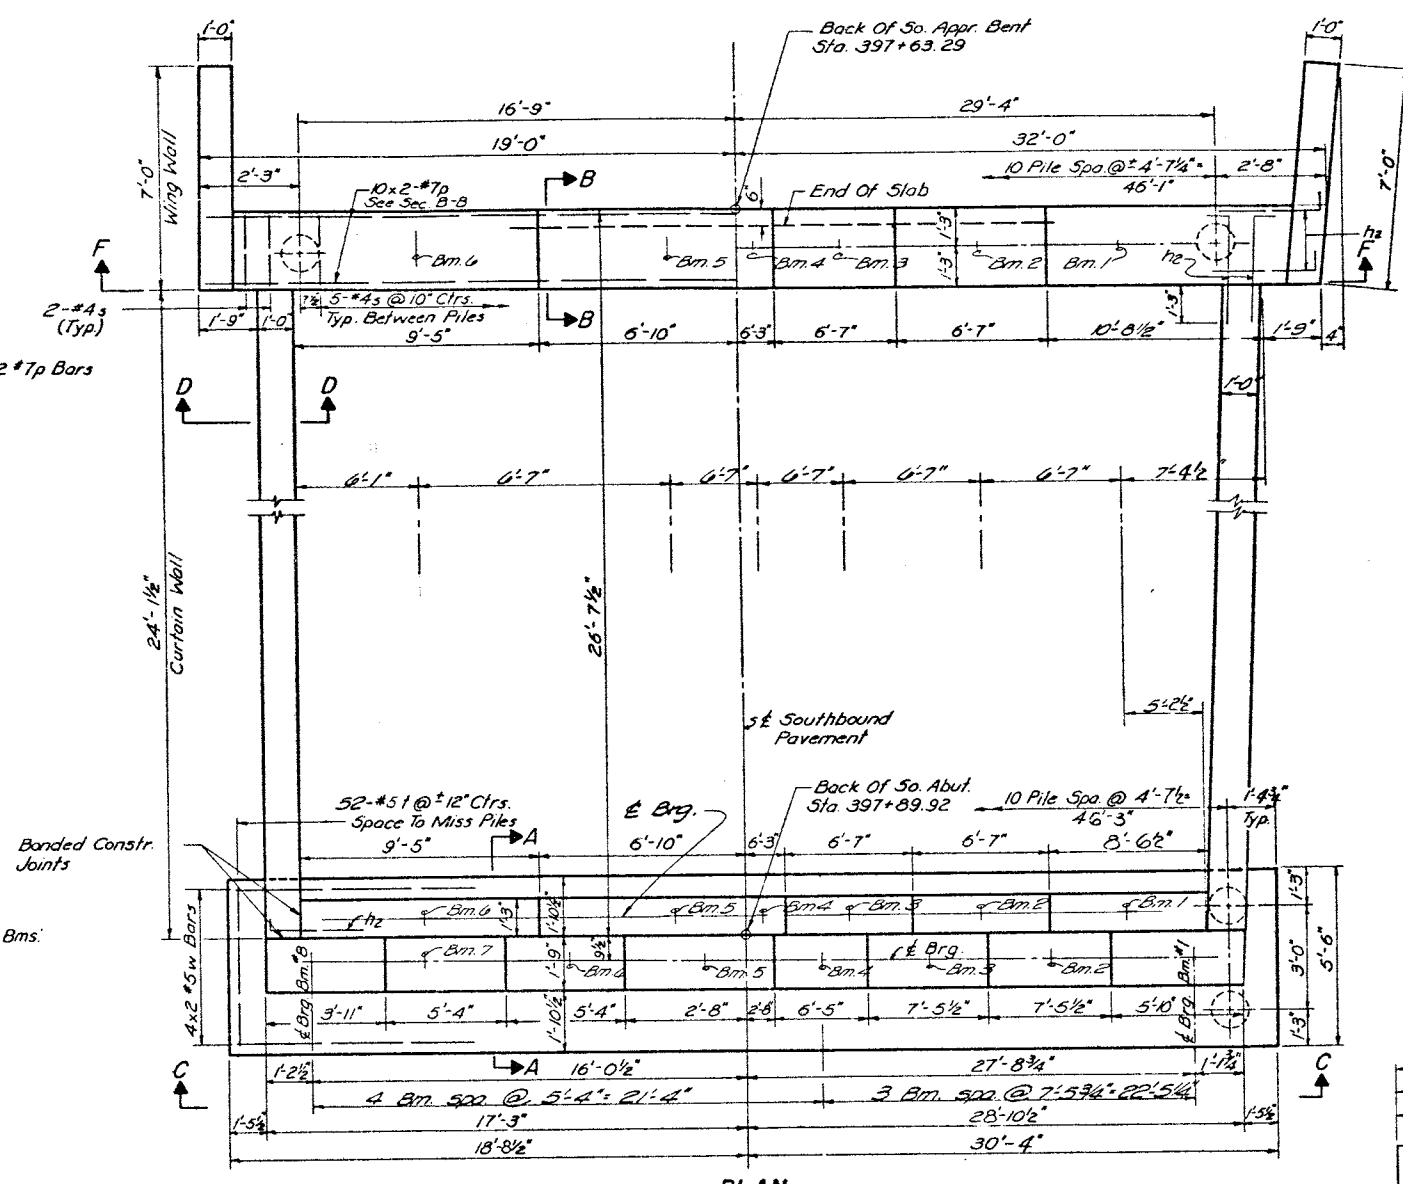 1'-0"
Back Of So. Appr. Bent
Sta. 397+63.29
1'-0"
16'-9"
29'-4"
19'-0"
32'-0"
7'-0"
Wing Wall
2'-3"
10x2-#7p
See Sec. B-B
B
6"
End Of Slab
10 Pile Spa.@ ± 4'-7¼"=
46'-1"
2'-8"
7'-0"
F
Bm.6
Bm.5
6"
Bm.4
Bm.3
1'-3"
1'-3"
Bm.2
Bm.1
h2
h2
F
2-#4s
(Typ.)
1'-9"
1'-0"
7½
5-#4s @ 10" Ctrs.
Typ. Between Piles
B
9'-5"
6'-10"
6'-3"
6'-7"
6'-7"
10'-8½"
1'-3"
1'-9"
4"
2 #7p Bars
D
D
1'-0"
6'-1"
6'-7"
6'-7"
6'-7"
6'-7"
6'-7"
7'-4½"
24'-1½"
Curtain Wall
26'-7½"
5'-2½"
s ℄ Southbound
Pavement
52-#5t @ ± 12" Ctrs.
Space To Miss Piles
℄ Brg.
Back Of So. Abut.
Sta. 397+89.92
10 Pile Spa. @ 4'-7½=
46'-3"
1'-4¾"
Typ.
Bonded Constr.
Joints
9'-5"
A
6'-10"
6'-3"
6'-7"
6'-7"
8'-6½"
Bms.
4x2 #5w Bars
h2
Bm.6
1'-3"
1'-10½"
Bm.5
Bm.4
Bm.3
Bm.2
Bm.1
1'-3"
℄ Brg Bm.#8
Bm.7
1'-9"
Bm.6
9½"
Bm.5
Bm.4
℄ Brg.
Bm.3
Bm.2
℄ Brg Bm.#1
3'-0"
5'-6"
3'-11"
5'-4"
1'-10½"
5'-4"
2'-8"
2'-8"
6'-5"
7'-5½"
7'-5½"
5'-10"
1'-3"
C
1'-2½"
A
16'-0½"
27'-8¾"
1'-1¾"
C
4 Bm. spa. @ 5'-4"= 21'-4"
3 Bm. spa. @ 7'-5¾"=22'-5¼"
1'-5½
17'-3"
28'-10½"
1'-5½
18'-8½"
30'-4"
PLAN